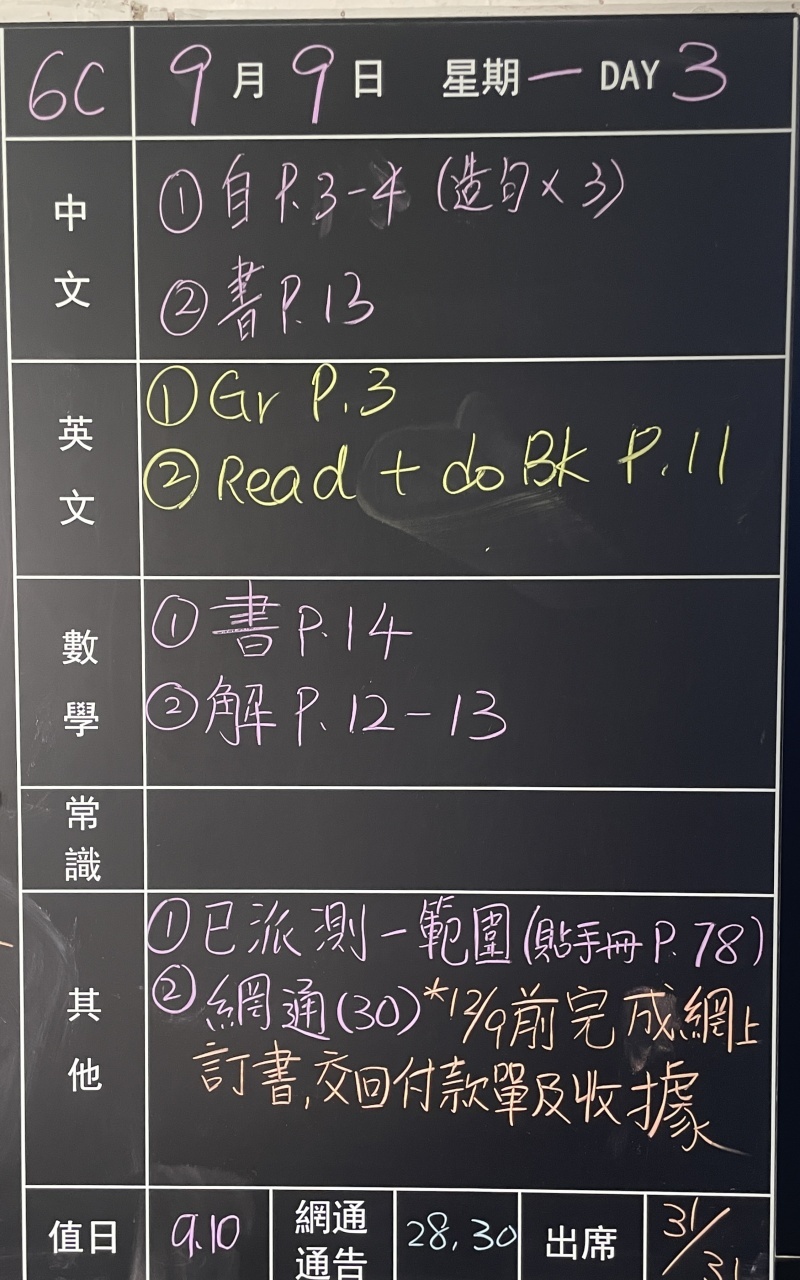 6C 9月9日 星期一 DAY 3
中文
①自P.3-4 (造句×3)
②書P.13
英文
①Gr P.3
②Read + do BK P.11
數學
①書P.14
②解P.12-13
常識
其他
①已派測一範圍(貼手冊P.78)
②網通(30)*12/9前完成網上
訂書,交回付款單及收據
值日 9.10 網通通告 28,30 出席 31/31